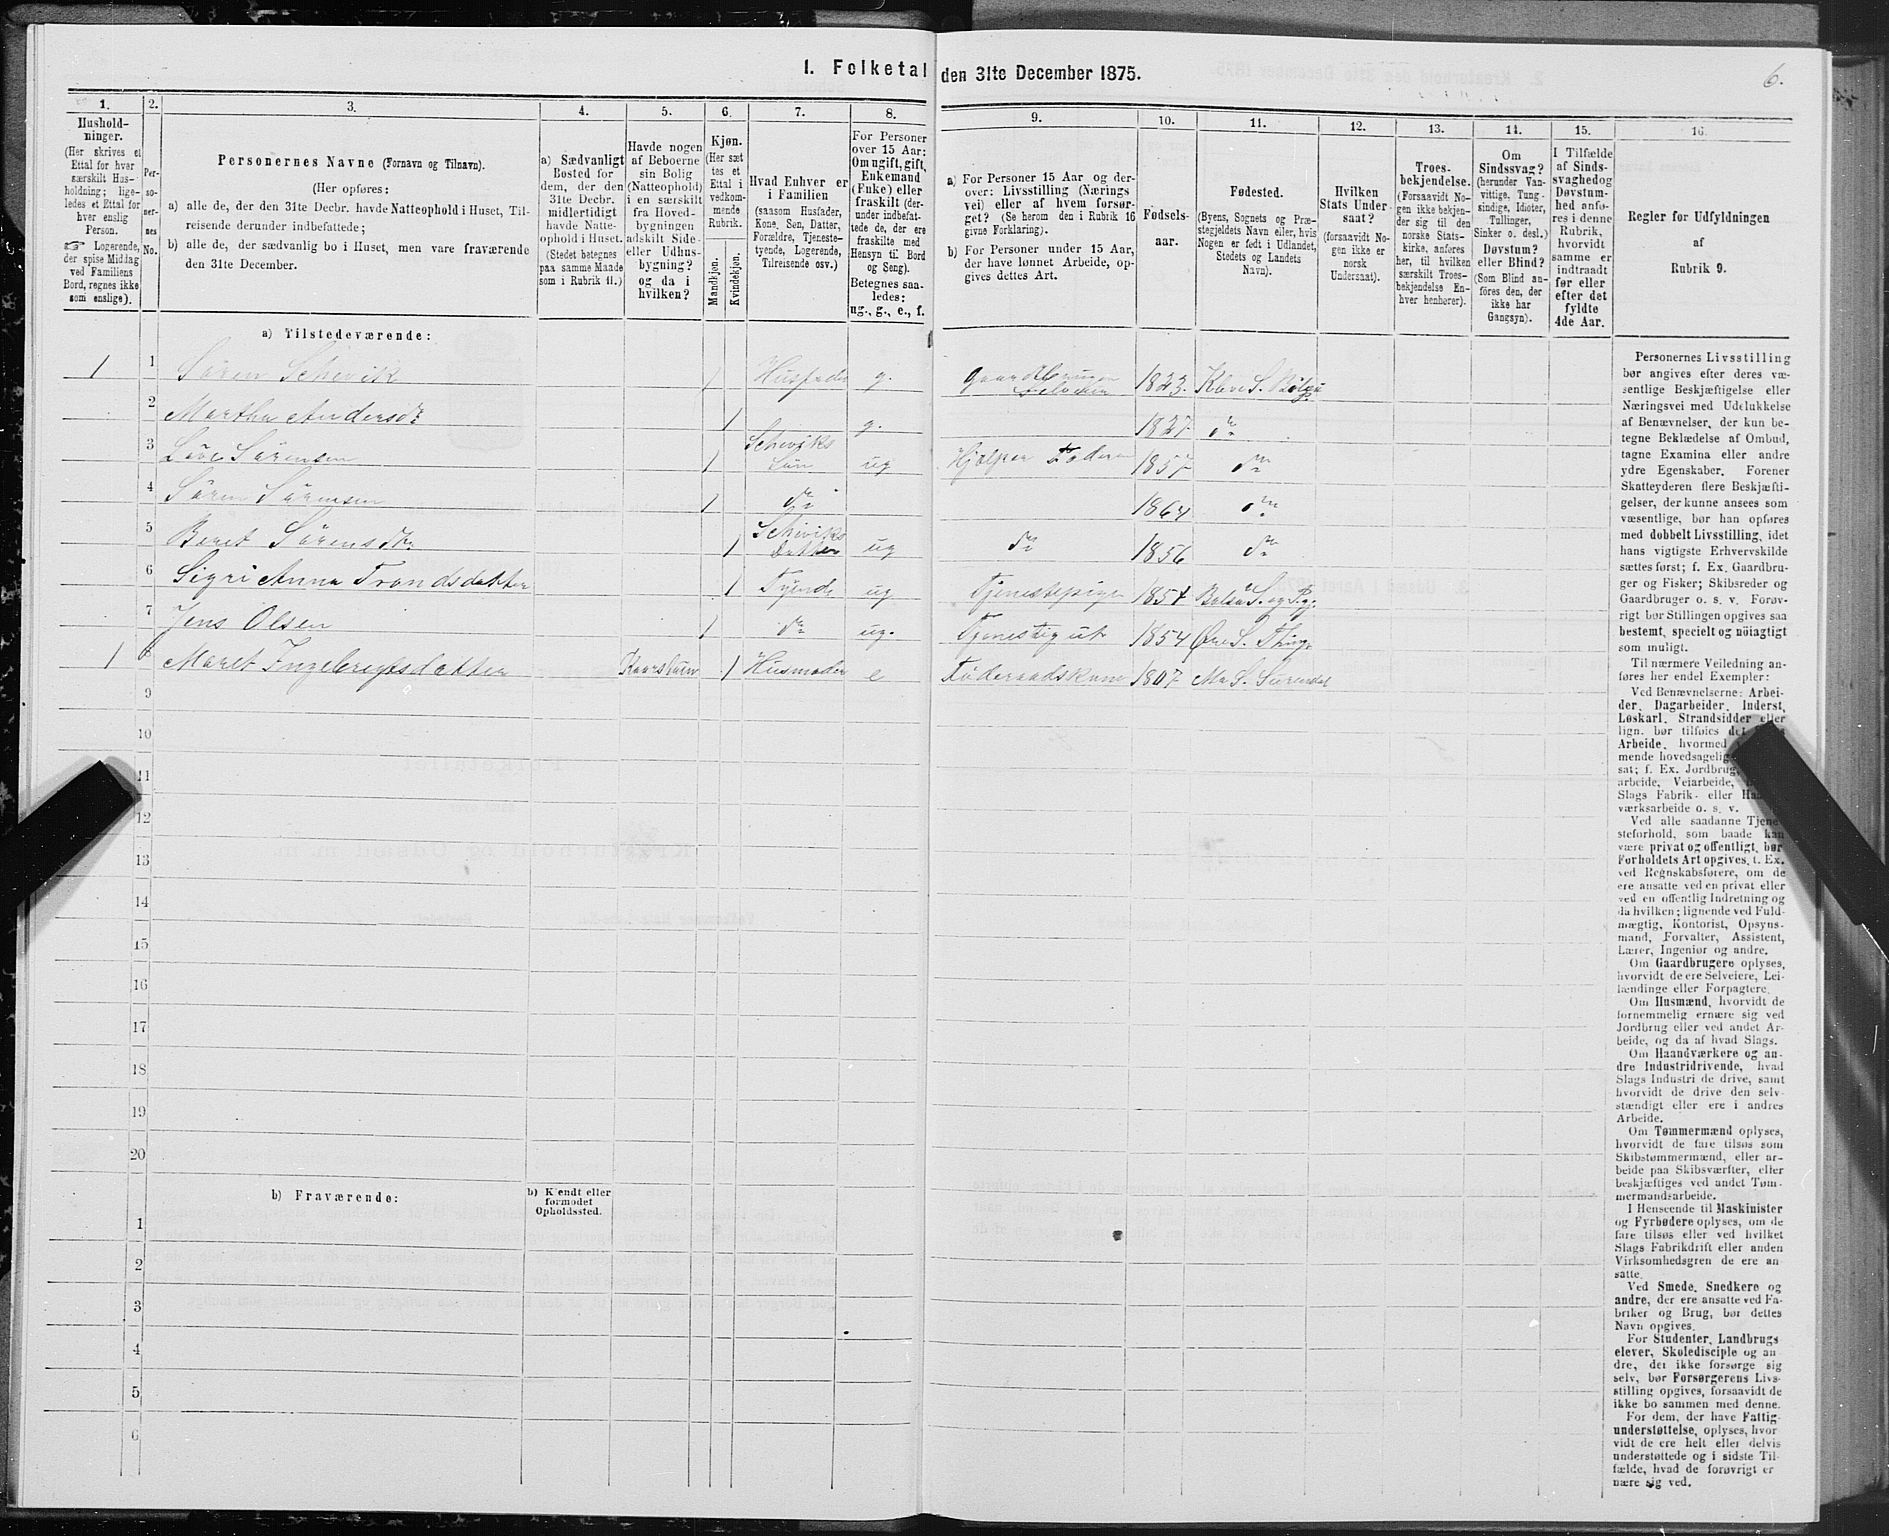 I. Folketal den 31te December 1875.
6.
1.
Hushold-
ninger.
(Her skrives et
Ettal for hver
særskilt Hus-
holdning; lige-
ledes et Ettal for
hver enslig
Person.
☞ Logerende,
der spise Middag
ved Familiens
Bord, regnes ikke
som enslige).
2.
Per-
so-
ner-
nes
No.
3.
Personernes Navne (Fornavn og Tilnavn).
(Her opføres:
a) alle de, der den 31te Decbr. havde Natteophold i Huset, Til-
reisende derunder indbefattede;
b) alle de, der sædvanlig bo i Huset, men vare fraværende
den 31te December.
4.
a) Sædvanligt
Bosted for
dem, der den
31te Decbr.
midlertidigt
havde Natte-
ophold i Huset.
(Stedet betegnes
paa samme Maade
som i Rubrik 11.)
5.
Havde nogen
af Beboerne
sin Bolig
(Natteophold)
i en særskilt
fra Hoved-
bygningen
adskilt Side-
eller Udhus-
bygning?
og da i
hvilken?
6.
Kjøn.
(Her sæt
tes et
Ettal i
vedkom-
mende
Rubrik.
Mandkjøn.
Kvindekjøn.
7.
Hvad Enhver er
i Familien
(saasom Husfader,
Kone, Søn, Datter,
Forældre, Tjeneste-
tyende, Logerende,
Tilreisende osv.)
8.
For Personer
over 15 Aar:
Om ugift, gift,
Enkemand
(Enke) eller
fraskilt (der-
under indbefat-
tede de, der ere
fraskilte med
Hensyn til Bord
og Seng).
Betegnes saa-
ledes:
ug., g., e., f.
9.
a) For Personer 15 Aar og der-
over: Livsstilling (Nærings
vei) eller af hvem forsør-
get? (Se herom den i Rubrik 16
givne Forklaring).
b) For Personer under 15 Aar,
der have lønnet Arbeide, op-
gives dettes Art.
10.
Fødsels-
aar.
11.
Fødested.
(Byens, Sognets og Præ-
stegjeldets Navn eller, hvis
Nogen er født i Udlandet,
Stedets og Landets
Navn).
12.
Hvilken
Stats Under
saat?
(forsaavidt No-
gen ikke er
norsk
Undersaat).
13.
Troes-
bekjendelse.
(Forsaavidt No-
gen ikke bekjen-
der sig til den
norske Stats-
kirke, anføres
her, til hvilken
særskilt Troes-
bekjendelse En-
hver henhører).
14.
Om
Sindssvag?
(herunder Van-
vittige, Tung-
sindige, Idioter,
Tullinger,
Sinker o. desl.)
Døvstum?
eller Blind?
(Som Blind an-
føres den, der
ikke har
Gangsyn).
15.
I Tilfælde
af Sinds-
svaghed og
Døvstum-
hed anfø-
res i denne
Rubrik,
hvorvidt
samme er
indtraadt
før eller
efter det
fyldte
4de Aar.
16.
Regler for Udfyldningen
af
Rubrik 9.
a) Tilstedeværende:
1 1 Sören Schevik 1 Husfader g. Gaardbruger Selveier 1823. Klöve S. Bölgö P
2 Martha Andersdtr 1 g. 1827 do
3 Löve Sörensen 1 Scheviks Sön ug Hjælper Faderen 1857 do
4 Sören Sörensen 1 do 1864 do
5 Beret Sörensdtr 1 Scheviks Datter ug do 1856 do
6 Sigri Anna Trondsdatter 1 Tyende ug Tjenestepige 1854 Bolsö S. og Pgj.
7 Jens Olsen 1 do ug. Tjenestegut 1854 Öre S. Thing
1 8 Maret Ingebregtsdatter 1 Husmoder e Föderaadskone 1807 Mo S. Surendal
9
10
11
12
13
14
15
16
17
18
19
20
b) Fraværende:
b) Kjendt eller
formodet
Opholdssted.
1
2
3
4
5
6
Personernes Livsstilling
bør angives efter deres væ-
sentlige Beskjæftigelse eller
Næringsvei med Udelukkelse
af Benævnelser, der kun be-
tegne Beklædelse af Ombud,
tagne Examina eller andre
ydre Egenskaber. Forener
Skatteyderen flere Beskjæfti-
gelser, der kunne ansees som
væsentlige, bør han opføres
med dobbelt Livsstilling, idet
hans vigtigste Erhvervskilde
sættes først; f. Ex. Gaardbru-
ger og Fisker; Skibsreder og
Gaardbruger o. s. v. Forøv-
rigt bør Stillingen opgives saa
bestemt, specielt og nöiagtigt
som muligt.
Til nærmere Veiledning an-
føres her endel Exempler:
Ved Benævnelserne: Arbei-
der, Dagarbeider, Inderst,
Løskarl, Strandsidder eller
lign. bør tilføies det
Arbeide, hvormed
mende hovedsagelig
sat; f. Ex. Jordbrug,
arbeide, Veiarbeide,
Slags Fabrik- eller
værksarbeide o. s. v.
Ved alle saadanne Tjene-
steforhold, som baade kan
være privat og offentligt, bør
Forholdets Art opgives, t. Ex.
ved Regnskabsførere, om de
ere ansatte ved en privat eller
ved en offentlig Indretning og
da hvilken; lignende ved Fuld-
mægtig, Kontorist, Opsyns-
mand, Forvalter, Assistent,
Lærer, Ingeniør og andre.
Om Gaardbrugere oplyses,
hvorvidt de ere Selveiere, Lei-
lændinge eller Forpagtere.
Om Husmænd, hvorvidt de
fornemmelig ernære sig ved
Jordbrug eller ved andet Ar-
beide, og da af hvad Slags.
Om Haandværkere og an-
dre Industridrivende, hvad
Slags Industri de drive, samt
hvorvidt de drive den selv-
stændigt eller ere i andres
Arbeide.
Om Tømmermænd oplyses,
hvorvidt de fare tilsøs som
Skibstømmermænd, eller ar-
beide paa Skibsværfter, eller
beskjæftiges ved andet Tøm-
mermandsarbeide.
I Henseende til Maskinister
og Fyrbødere oplyses, om de
fare tilsøs eller ved hvilket
Slags Fabrikdrift eller anden
Virksomhedsgren de ere an-
satte.
Ved Smede, Snedkere og
andre, der ere ansatte ved Fa-
briker og Brug, bør dettes
Navn opgives.
For Studenter, Landbrugs
elever, Skoledisciple og an-
dre, der ikke forsørge sig
selv, bør Forsørgerens Livs-
stilling opgives, forsaavidt de
ikke bo sammen med denne.
For dem, der have Fattig-
understøttelse, oplyses, hvor
vidt de ere helt eller delvis
understøttede og i sidste Til-
fælde, hvad de forøvrigt er
nære sig ved.